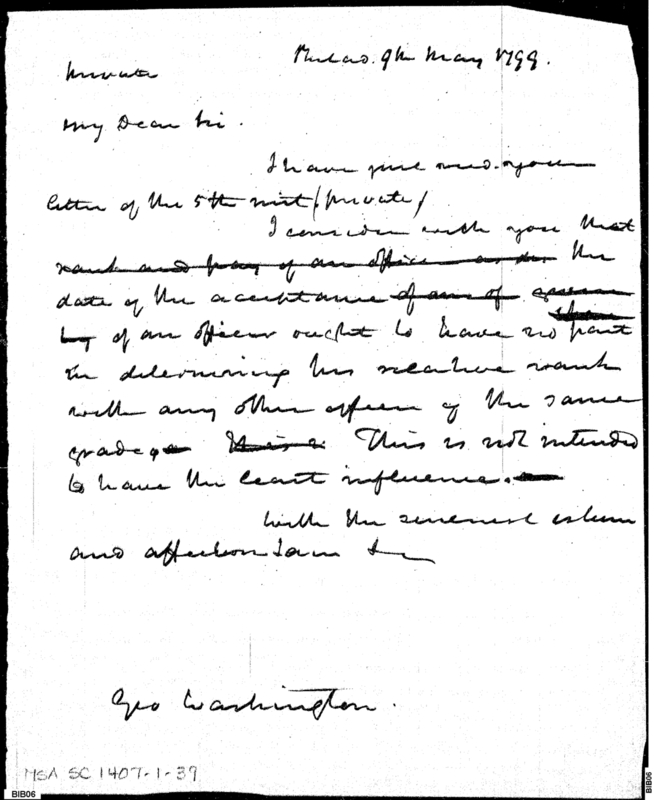 Philad. 9th May 1799.
Private
My Dear Sir.
I have just recd. your
letter of the 5th inst (private)
I consider with you that
rank and pay of an officer the
date of the acceptance
by of an officer ought to have no part
in determining his relative rank
with any other officer of the same
grade, This is not intended
to have the least influence.
With the sincerest esteem
and affection I am &
Geo Washington.
MSA SC 1407-1-39
BIB06
BIB06